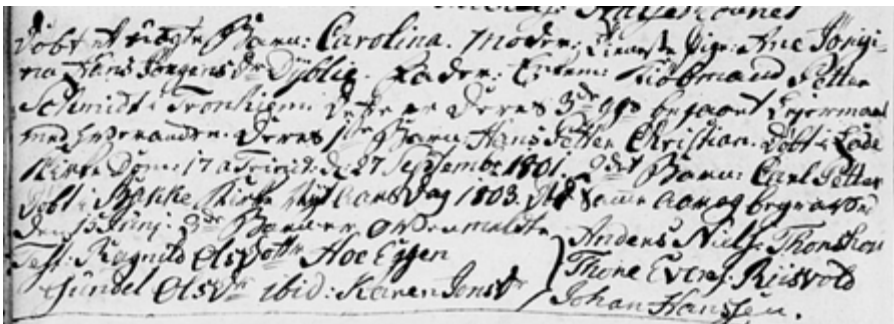 Døbt et uægte Barn: Carolina. Moder: Tieneste Pige: Ane Jørgi-
na Hans Jørgens Dr Dyblie. Fader: Kiøbmand Petter
Schmidt i Tronhiem. Dette er deres 3de gg begaaet Lejermaal
med hverandre. Deres 1te Barn: Hans Petter Christian. Døbt i Lade
Kirke Dom: 17 a Trinit: d. 27 Septembr 1801. 2det Barn: Carl Petter
døbt i Bakke Kirke Nyt Aars Dag 1803. samme Aar og begraven
den Junj. 3de Barn er ovenmeldte
Test: Ragnild Olsdottr Hoe Eggen
Gundel Olsdr ibid: Karen Jonsdr
Anders Nielss: Thonshou
Thone Evens: Risvold
Johan Hanssen.